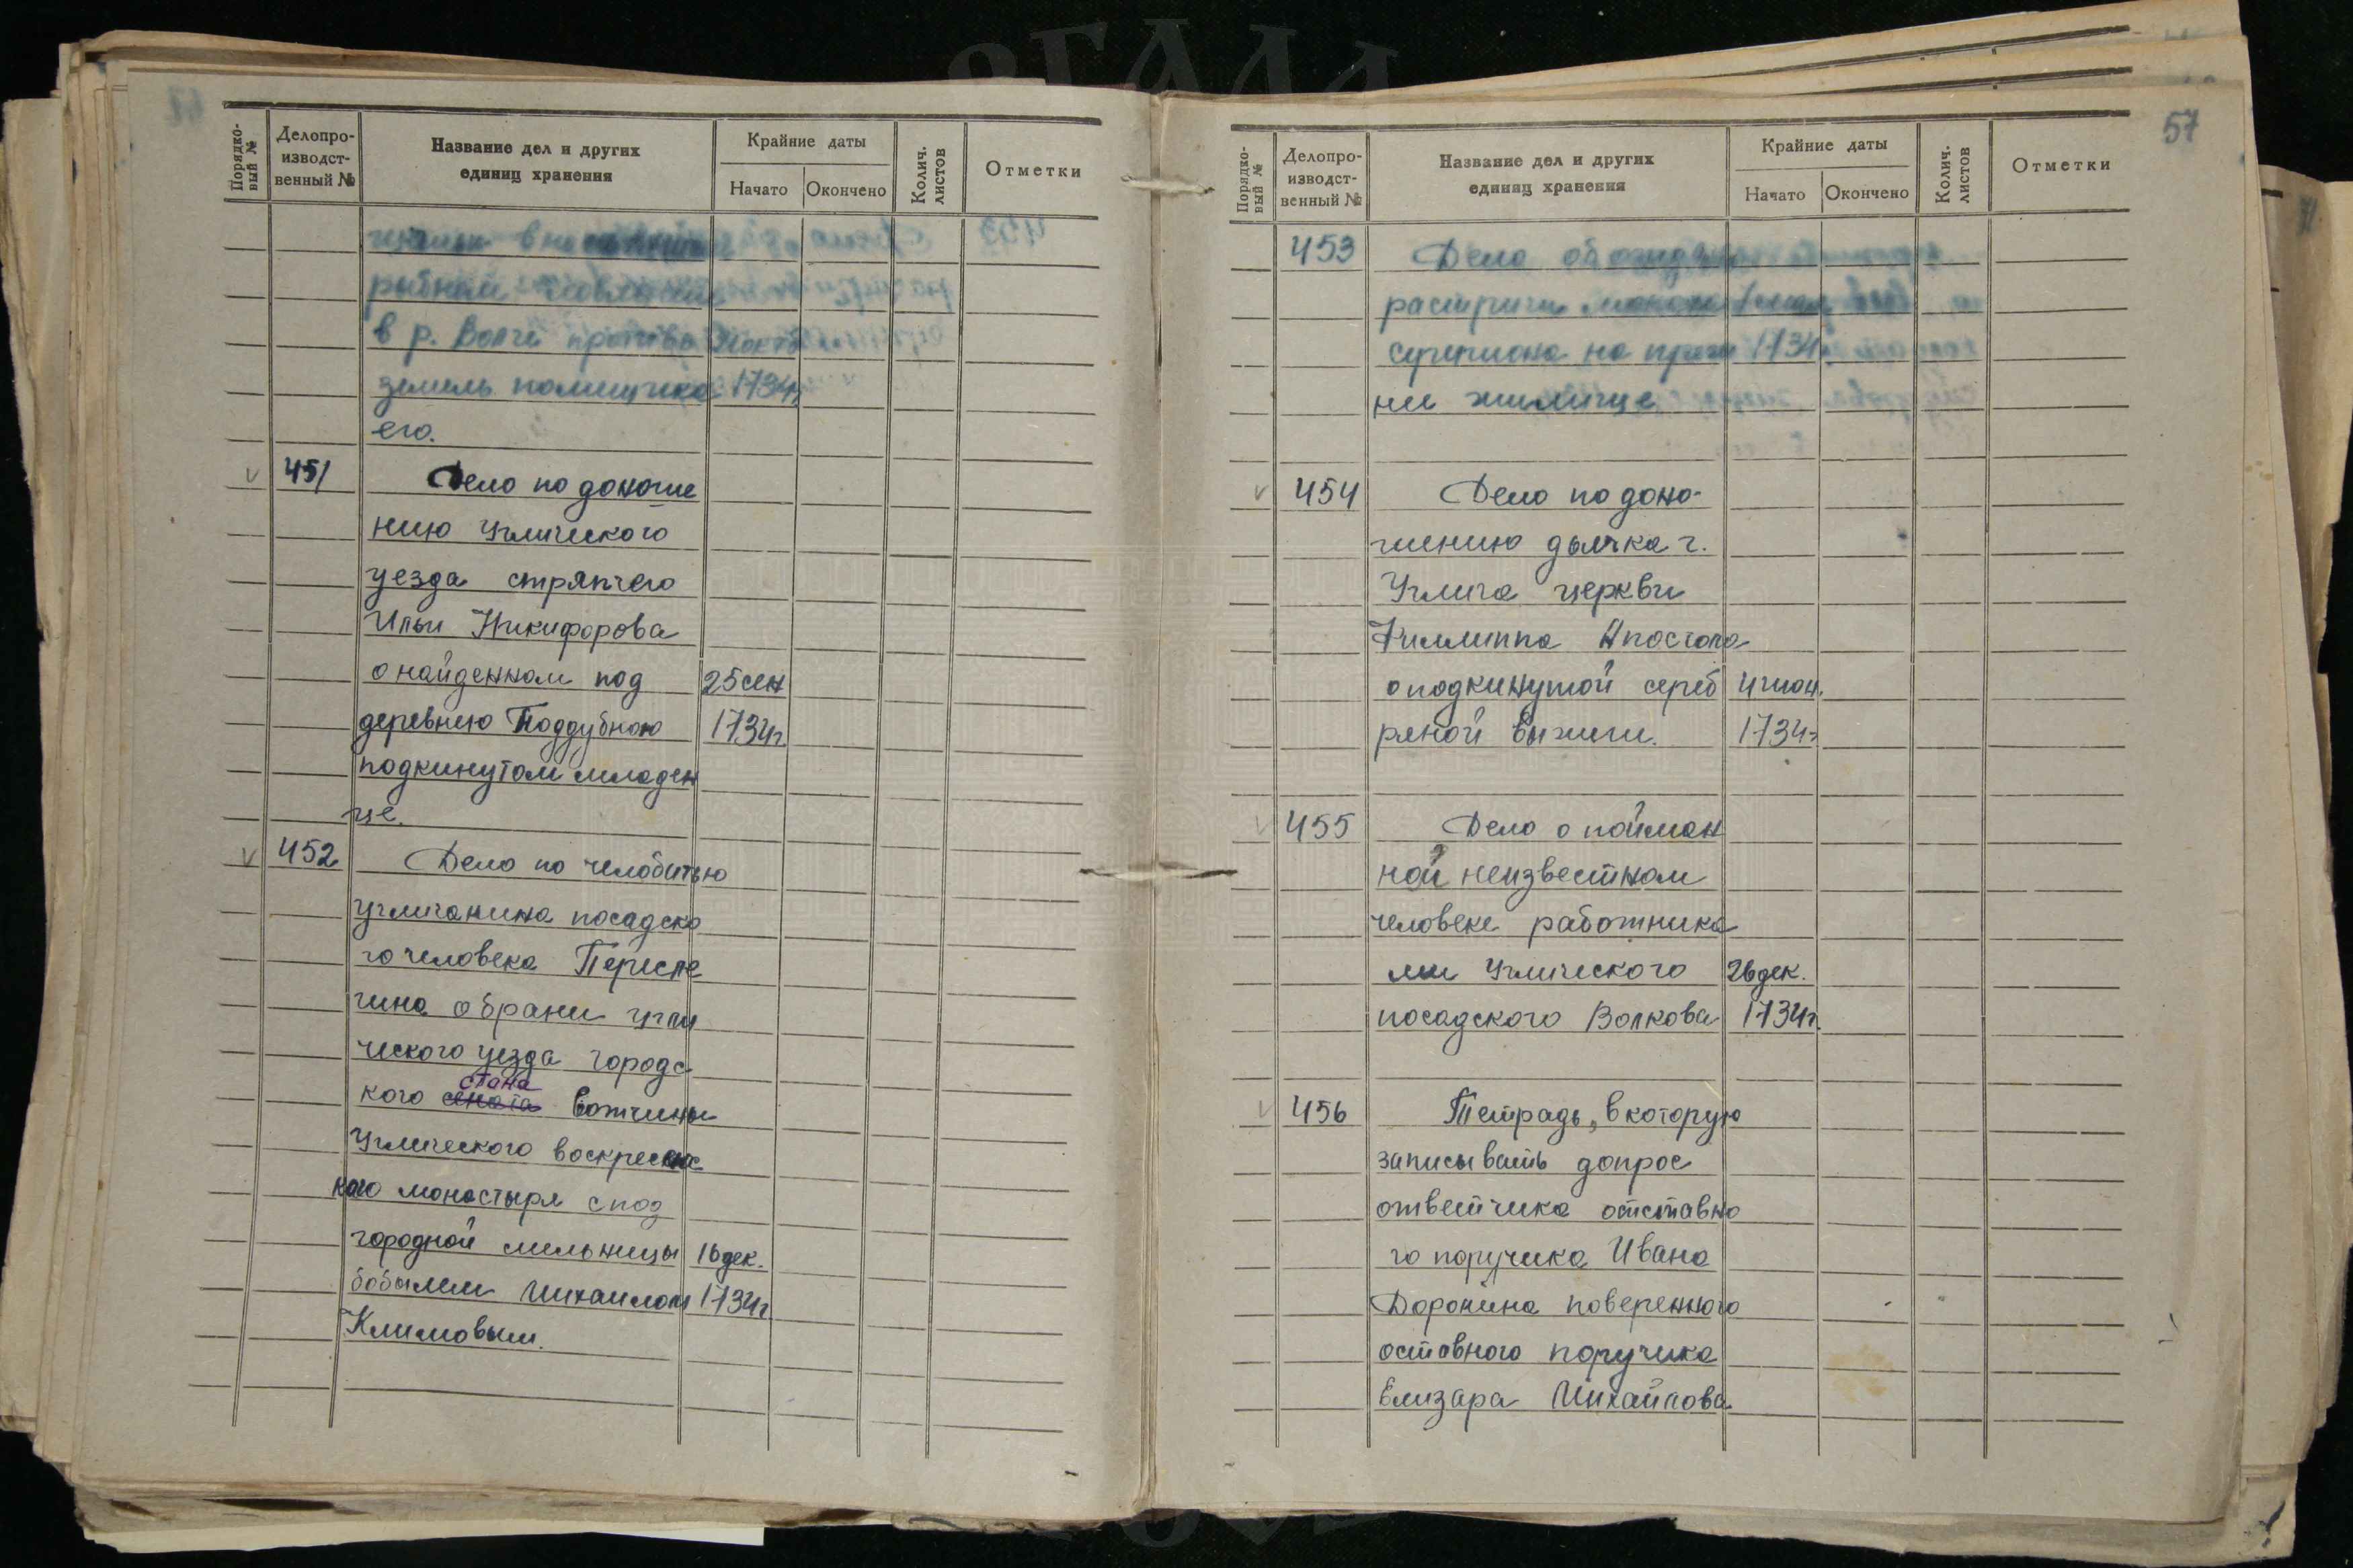 Порядко-
вый №
Делопро-
изводст-
венный №
Название дел и других
единиц хранения
Крайние даты
Начато
Окончено
Колич.
листов
Отметки
в р. Волге против
земель помещика 1734г
его.
451 Дело по доноше
нию Углического
уезда стряпчего
Ильи Никифорова
о найденном под 25 сен
деревнею Поддубною 1734г
подкинутом младен
це.
452 Дело по челобитью
угличанина посадско
го человека Переспе
гина о брани угли
ческого уезда городс
стана
кого сената вотчины
Углического воскресенс
каго монастыря с под
городной мельницы 16 дек.
бобылем Михаилом 1734г
Климовым.
57
Порядко-
вый №
Делопро-
изводст-
венный №
Название дел и других
единиц хранения
Крайние даты
Начато
Окончено
Колич.
листов
Отметки
453 Дело об
растриги
на 1734
нее жилище
454 Дело по доно-
шению дьячка г.
Углича церкви
Филлиппа Апостола
о подкинутой сереб 4 июн.
ряной выжеги. 1734г
455 Дело о пойман
ной неизвестном
человеке работника
ми Углического 26 дек.
посадского Волкова 1734г.
456 Тетрадь, в которую
записывать допрос
ответчика отставно
го поручика Ивана
Доронина поверенного
оставного поручика
Елизара Михайлова